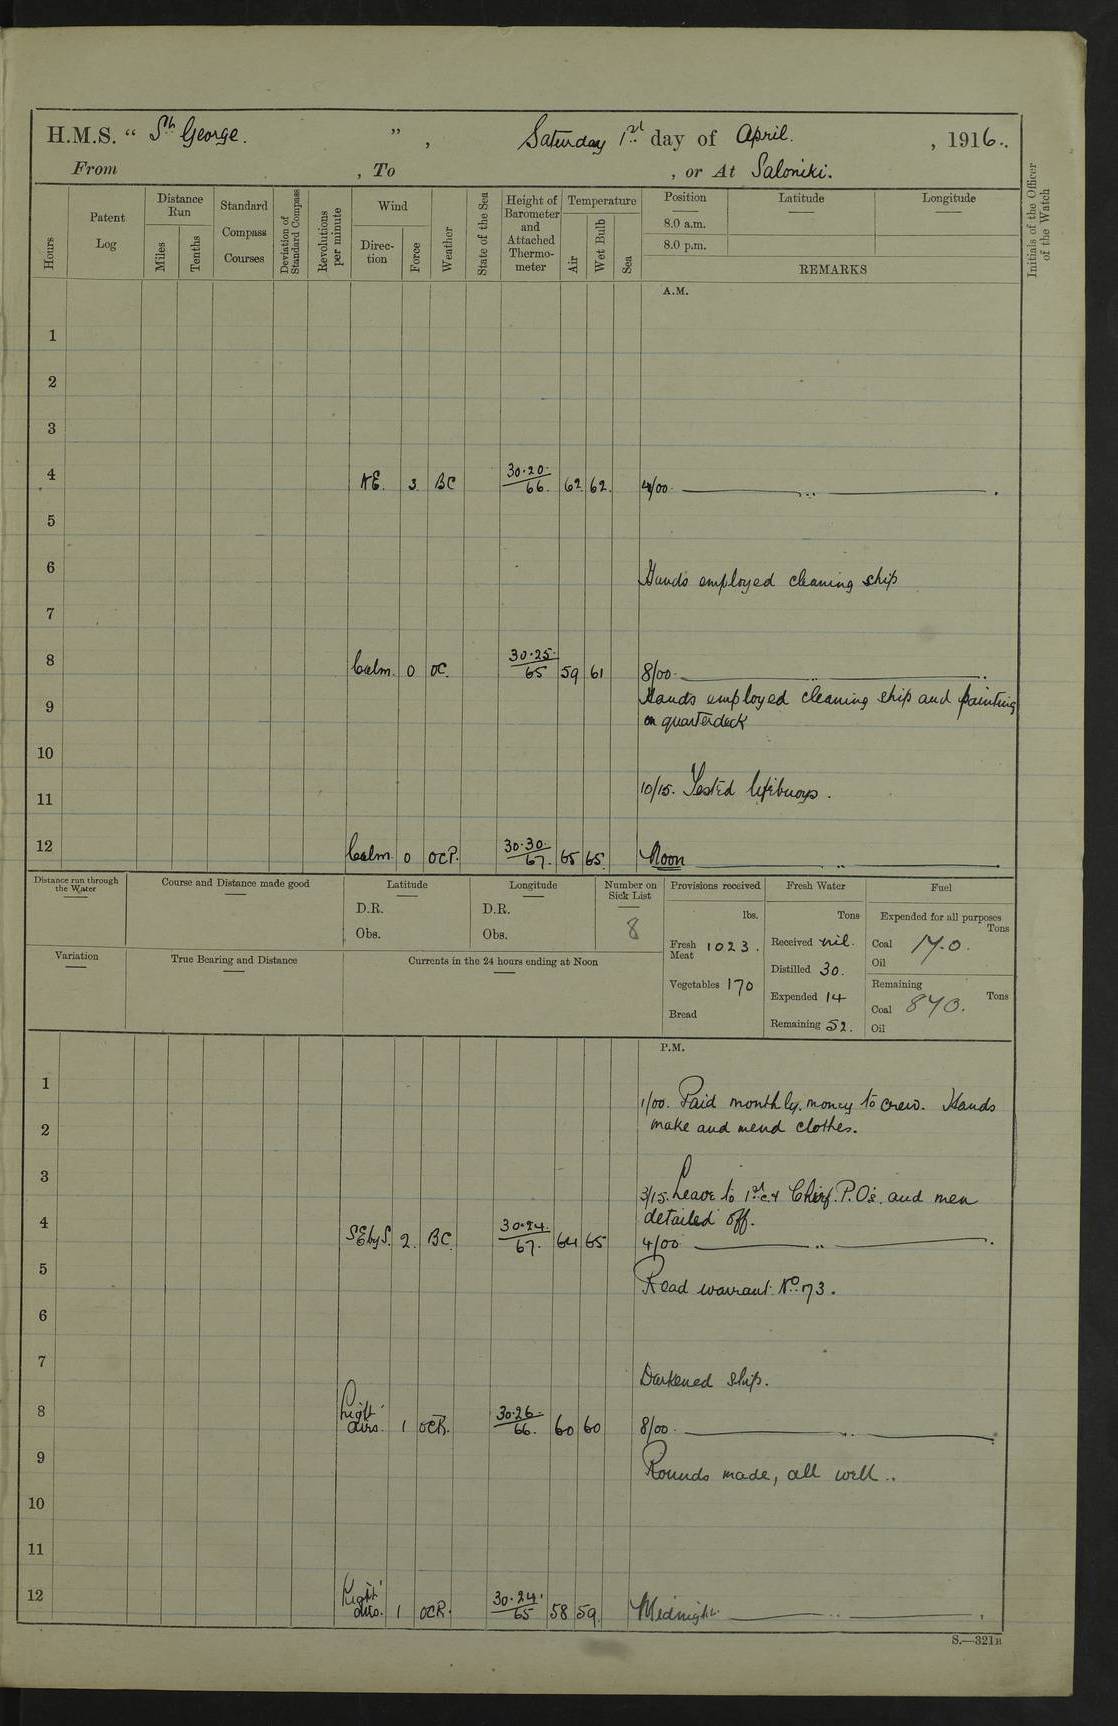 H.M.S. “ St George. ” , Saturday 1st day of April. , 1916.
From , To , or At Saloniki.
Hours
Patent Log
Distance Run
Miles
Tenths
Standard Compass Courses
Deviation of Standard Compass
Revolutions per minute
Wind
Direc-tion
Force
Weather
State of the Sea
Height of Barometer and Attached Thermo-meter
Temperature
Air
Wet Bulb
Sea
Position
8.0 a.m.
8.0 p.m.
Latitude
Longitude
REMARKS
Initials of the Officer of the Watch
A.M.
1
2
3
4 NE. 3 BC 30·20 66. 62 62. 4/00 ,,
5
6 Hands employed cleaning ship
7
8 Calm. 0 OC. 30·25 65 59 61 8/00 ,,
9 Hands employed cleaning ship and painting
on quarterdeck
10
11 10/15. Tested lifebuoys.
12 Calm 0 OCP. 30·30 67. 65 65. Noon ,,
Distance run through the Water
Course and Distance made good
Latitude
D.R.
Obs.
Longitude
D.R.
Obs.
Number on Sick List
8
Provisions received
lbs.
Fresh Meat 1023.
Vegetables 170
Bread
Fresh Water
Tons
Received nil.
Distilled 30.
Expended 14
Remaining 52.
Fuel
Expended for all purposes
Tons
Coal 17.0.
Oil
Remaining
Tons
Coal 870.
Oil
Variation
True Bearing and Distance
Currents in the 24 hours ending at Noon
P.M.
1 1/00. Paid monthly money to crew. Hands
2 make and mend clothes.
3 3/15. Leave to 1st c. & Chief. P.Os. and men
detailed off.
4 SEbyS. 2. BC. 30·24. 67. 64 65 4/00 ,,
5 Read warrant No. 73.
6
7 Darkened ship.
8 Light airs. 1 OCR. 30·26 66. 60 60 8/00 ,,
9 Rounds made, all well..
10
11
12 Light airs. 1 OCR. 30·24 65 58 59. Midnight. ,,
S.—321B